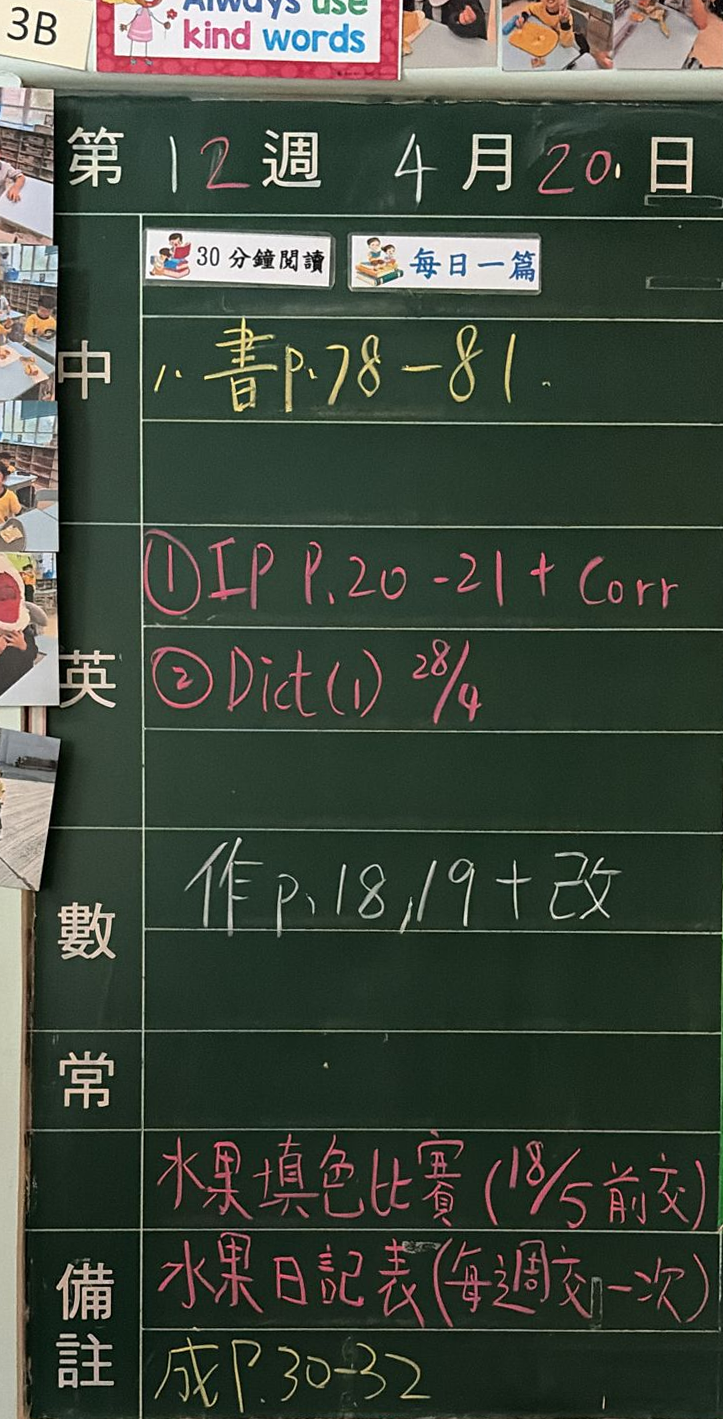 3B
Always use
kind words
第12週 4月20日
30分鐘閱讀 每日一篇
中
1. 書p.78-81.
英
①IP P.20-21+Corr
②Dict(1) 28/4
數
作p.18,19+改
常
水果填色比賽(18/5前交)
備註
水果日記表(每週交一次)
成P.30-32